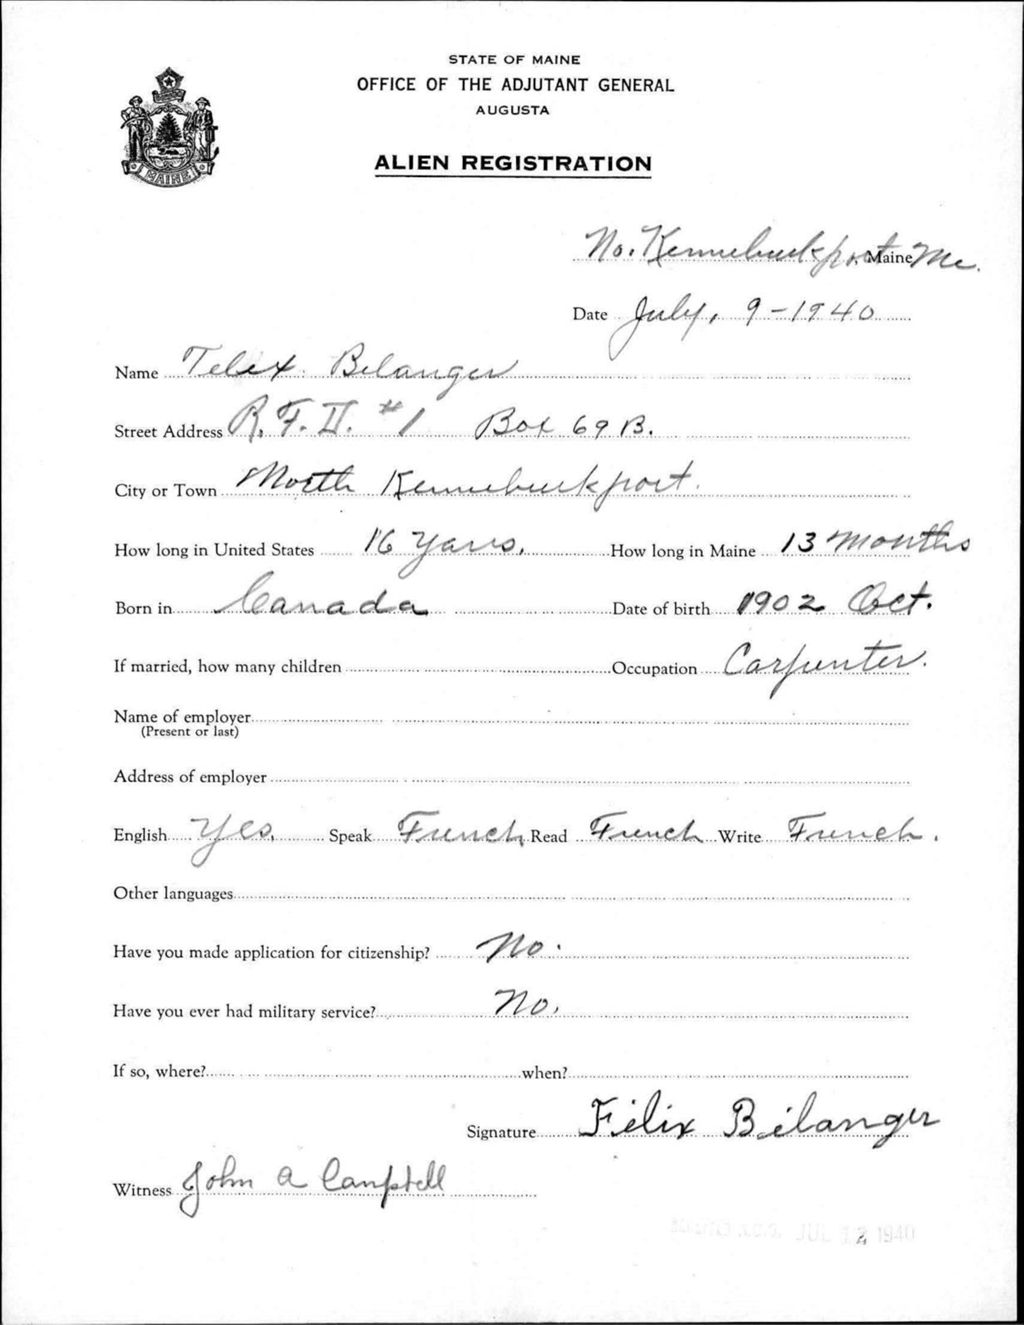 STATE OF MAINE
OFFICE OF THE ADJUTANT GENERAL
AUGUSTA
MAINE
ALIEN REGISTRATION
No. Kennebunkport, Maine Me.
Date July, 9-1940
Name Telix Belanger
Street Address R. F. D. #1 Box 69 B.
City or Town North Kennebunkport.
How long in United States 16 Years. How long in Maine 13 Months
Born in Canada Date of birth 1902 Oct.
If married, how many children Occupation Carpenter.
Name of employer
(Present or last)
Address of employer
English Yes. Speak French Read French Write French.
Other languages
Have you made application for citizenship? No.
Have you ever had military service? No.
If so, where? when?
Signature Félix Bélanger
Witness John A Campbell
JUL 12 1940